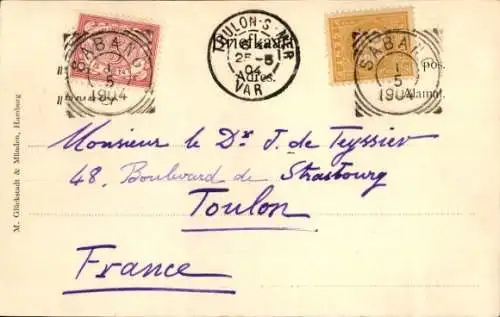 TOULON-S-MER
25-5
04
VAR
Briefkaart
Adres.
SABANG
1
5
1904
SABANG
1
5
1904
pos.
Alamat.
Monsieur le Dr J. de Teyssier
48, Boulevard de Strasbourg
Toulon
France
M. Glückstadt & Münden, Hamburg